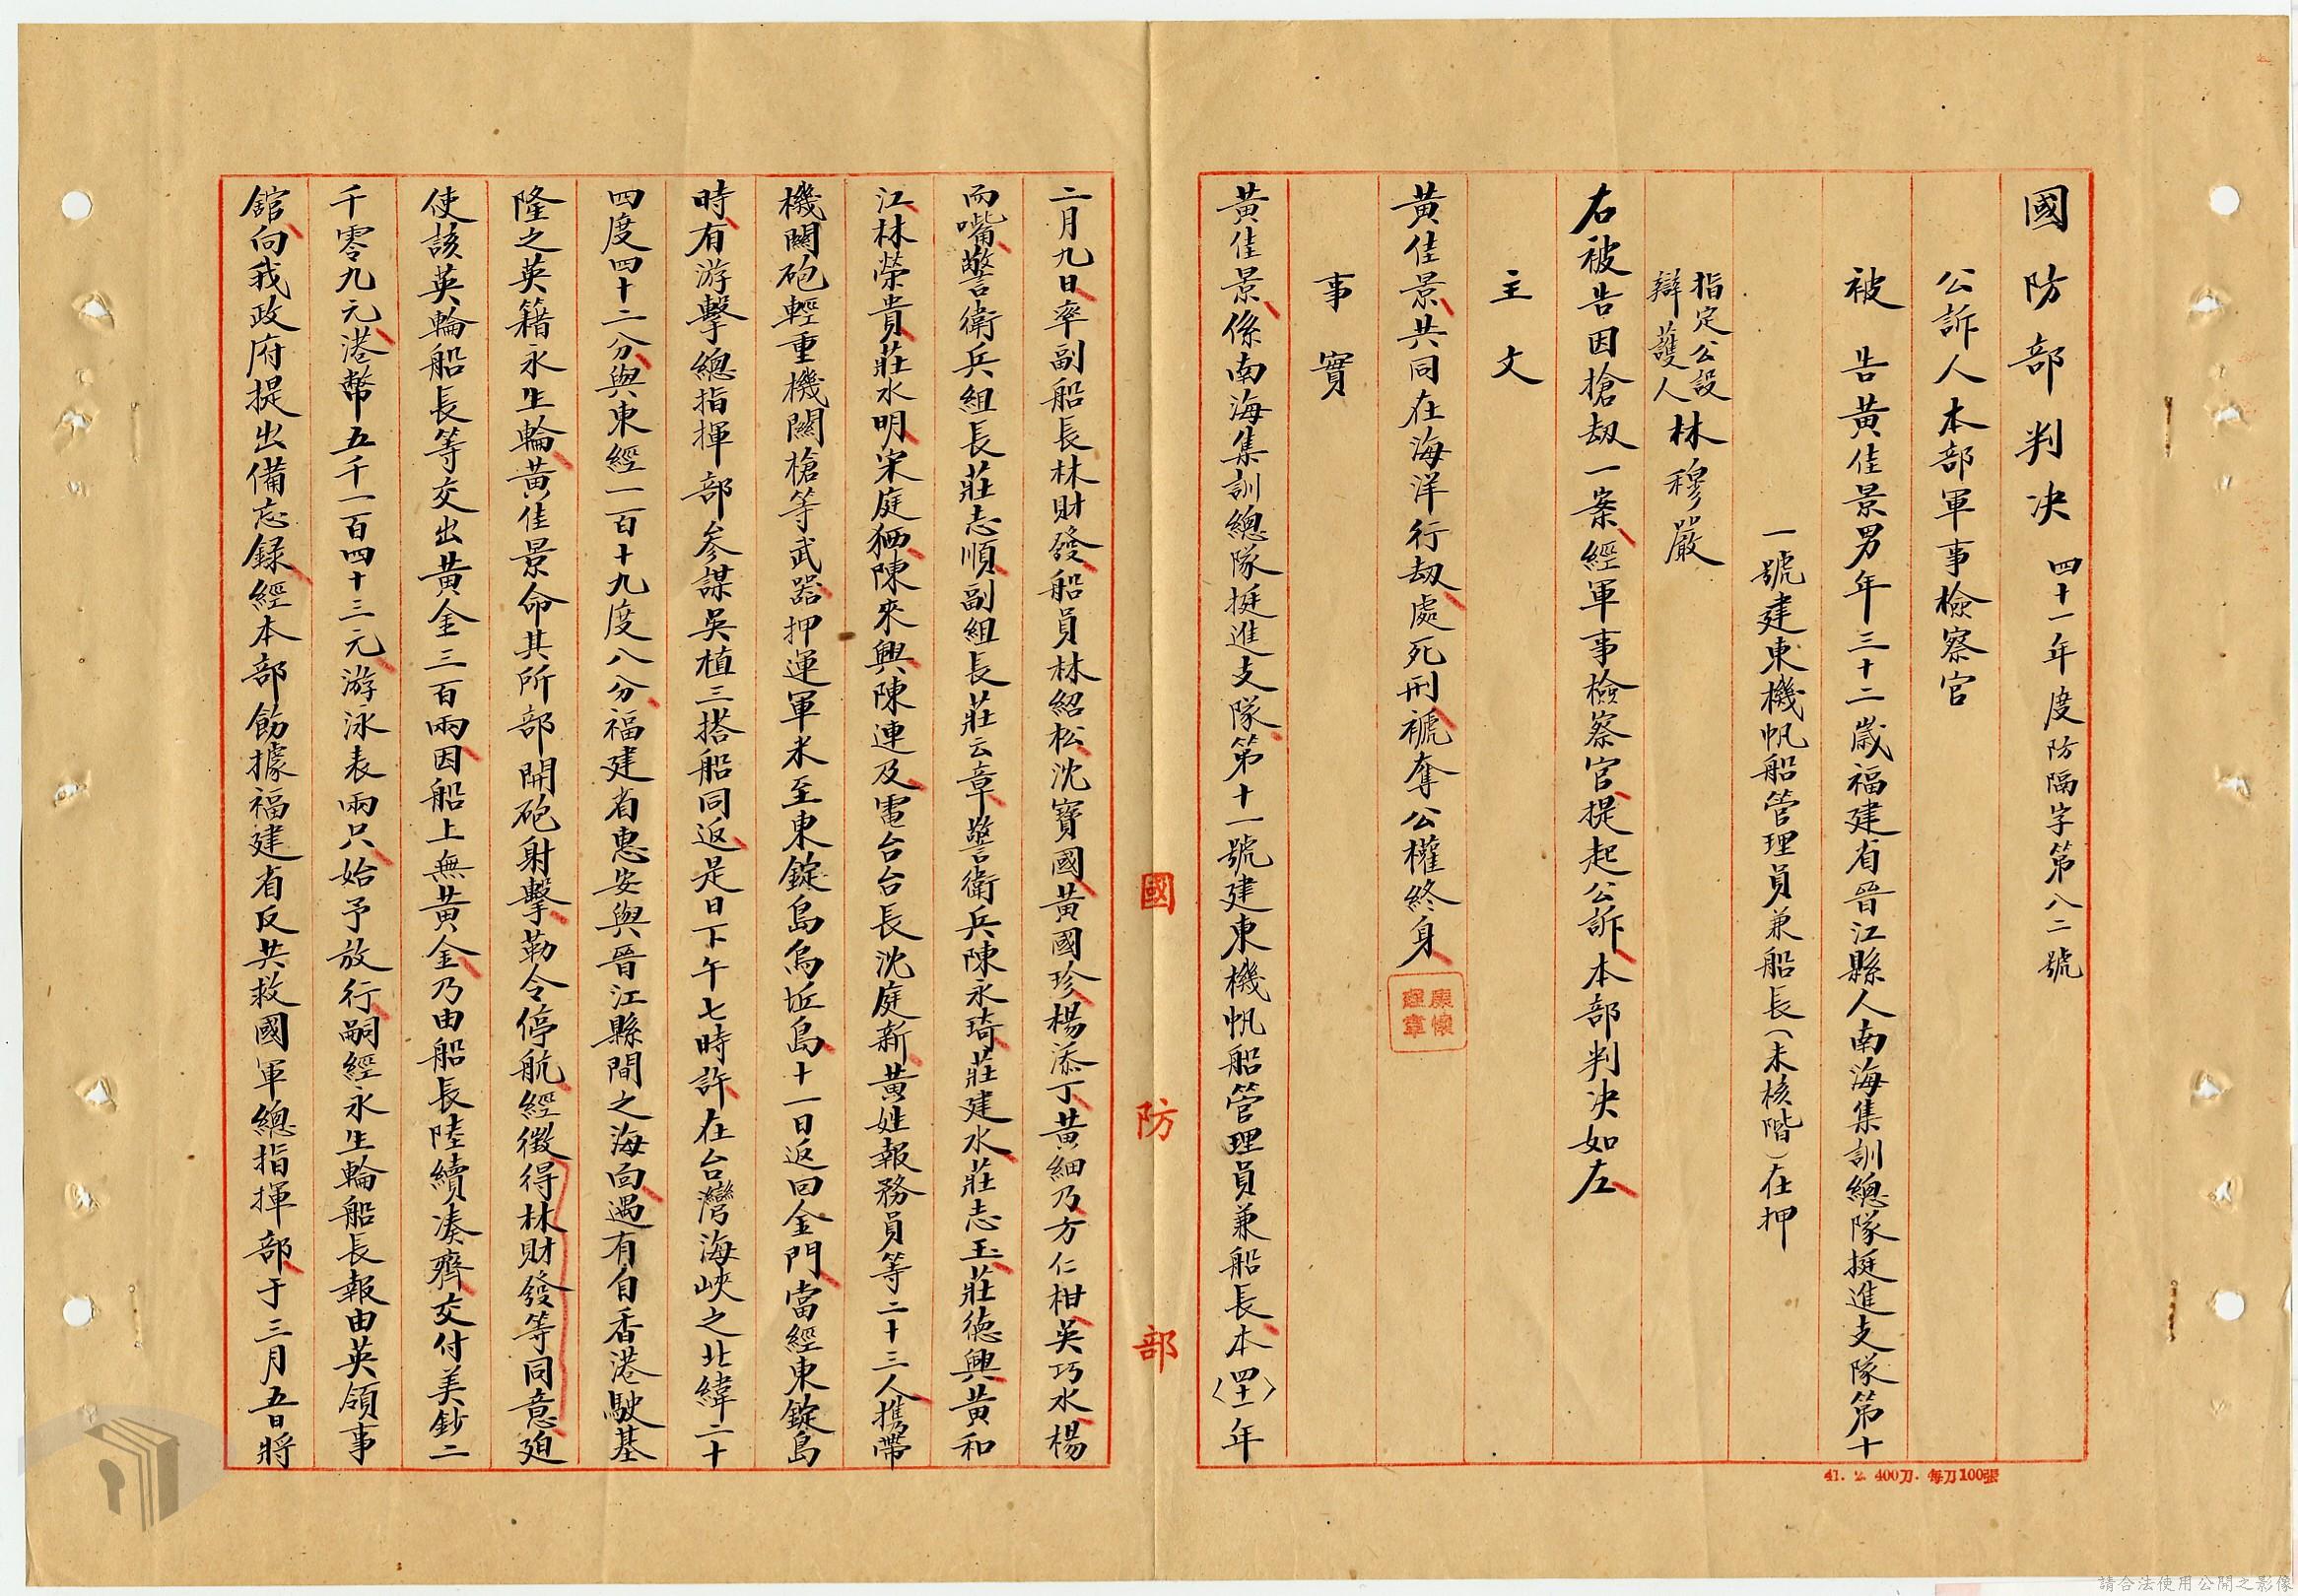 國防部判決 四十一年度防隔字第八二號
公訴人本部軍事檢察官
被告黃佳景男年三十二歲福建省晉江縣人南海集訓總隊挺進支隊第十
一號建東機帆船管理員兼船長(未核階)在押
指定公設
辯護人
林穆嚴
右被告因搶劫一案經軍事檢察官提起公訴本部判決如左
主文
黃佳景共同在海洋行劫處死刑褫奪公權終身
事實
黃佳景係南海集訓總隊挺進支隊第十一號建東機帆船管理員兼船長本〈四十一〉年
國防部
二月九日率副船長林財發船員林紹松沈寶國黃國珍楊添丁黃細乃方仁柑吳巧水楊
而嘴警衛兵組長莊志順副組長莊云章警衛兵陳永琦莊建水莊志玉莊德興黃和
江林榮貴莊水明宋庭栖陳來興陳連及電台台長沈庭新黃姓報務員等二十三人攜帶
機關砲輕重機關槍等武器押運軍米至東錠島烏坵島十一日返回金門當經東錠島
時有游擊總指揮部參謀吳植三搭船同返是日下午七時許在台灣海峽之北緯二十
四度四十二分與東經一百十九度八分福建省惠安與晉江縣間之海向遇有自香港駛基
隆之英籍永生輪黃佳景命其所部開砲射擊勒令停航經徵得林財發等同意迫
使該英輪船長等交出黃金三百兩因船上無黃金乃由船長陸續湊齊交付美鈔二
千零九元港幣五千一百四十三元游泳表兩只始予放行嗣經永生輪船長報由英領事
舘向我政府提出備忘錄經本部飭據福建省反共救國軍總指揮部于三月五日將
41. 2. 400刀. 每刀100張
請合法使用公開之影像